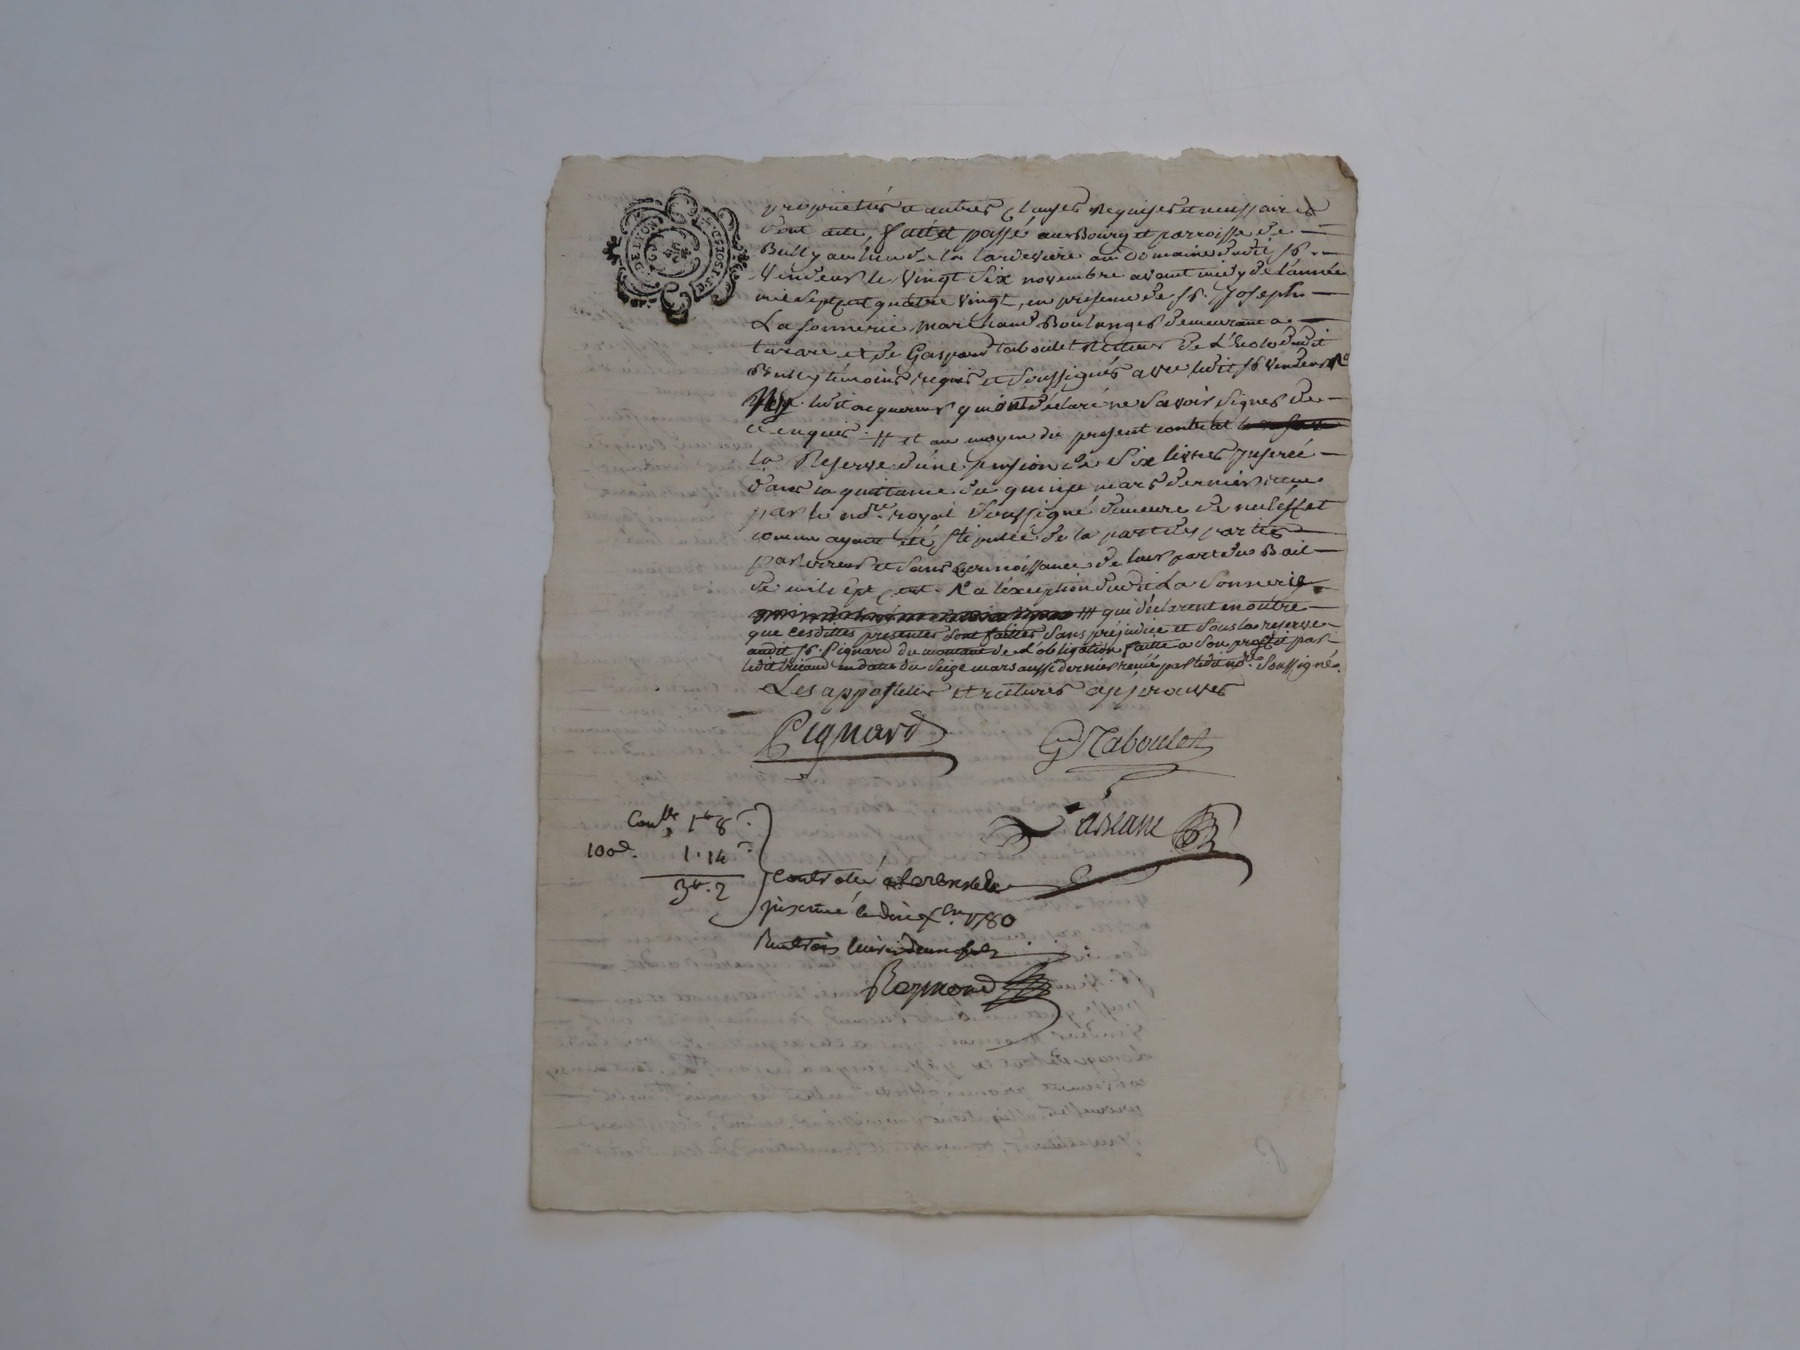 DE LYON
proprietés & autres clauses requises et necessaires
dont acte, fait et passé au Bourg et parroisse de
Bully au lieu de la au Domaine dudit sr.
Vendeur le vingt six novembre avant midy de l'année
mil sept cent quatre vingt, en presence de sr. Joseph
La Sonnerie marchand Boulanger demeurant a
tarare et de Gaspard taboulet Recteur de L'Ecole dudit
Bully témoins requis et soussignés avec ledit sr vendeur
ledit acquereur qui ont déclaré ne savoir signer de
ce enquis # et au moyen du present contrat
la Reserve d'une pension de six livres inserée
dans la quittance du quinze mars dernier reçue
par le nore. royal soussigné demeure de nul effet
comme ayant été stipulée de la part des parties
par erreur et sans connoissance de leur part du Bail
de mil sept cent. a l'exception dudit La Sonnerie
qui déclarent en outre
que cesdittes presentes sont faittes sans préjudice et sous la reserve
audit sr. Pignard du montant de L'obligation faitte a son profit par
ledit en datte du seize mars aussi dernier reçue par ledit nore. soussigné
Les appostilles et ratures approuvés
Pignard
Gd Taboulet
Conlle 1 8
100d. 1.14
3.2
Controlé a Larbresle
le dix Xbre 1780
Raymond